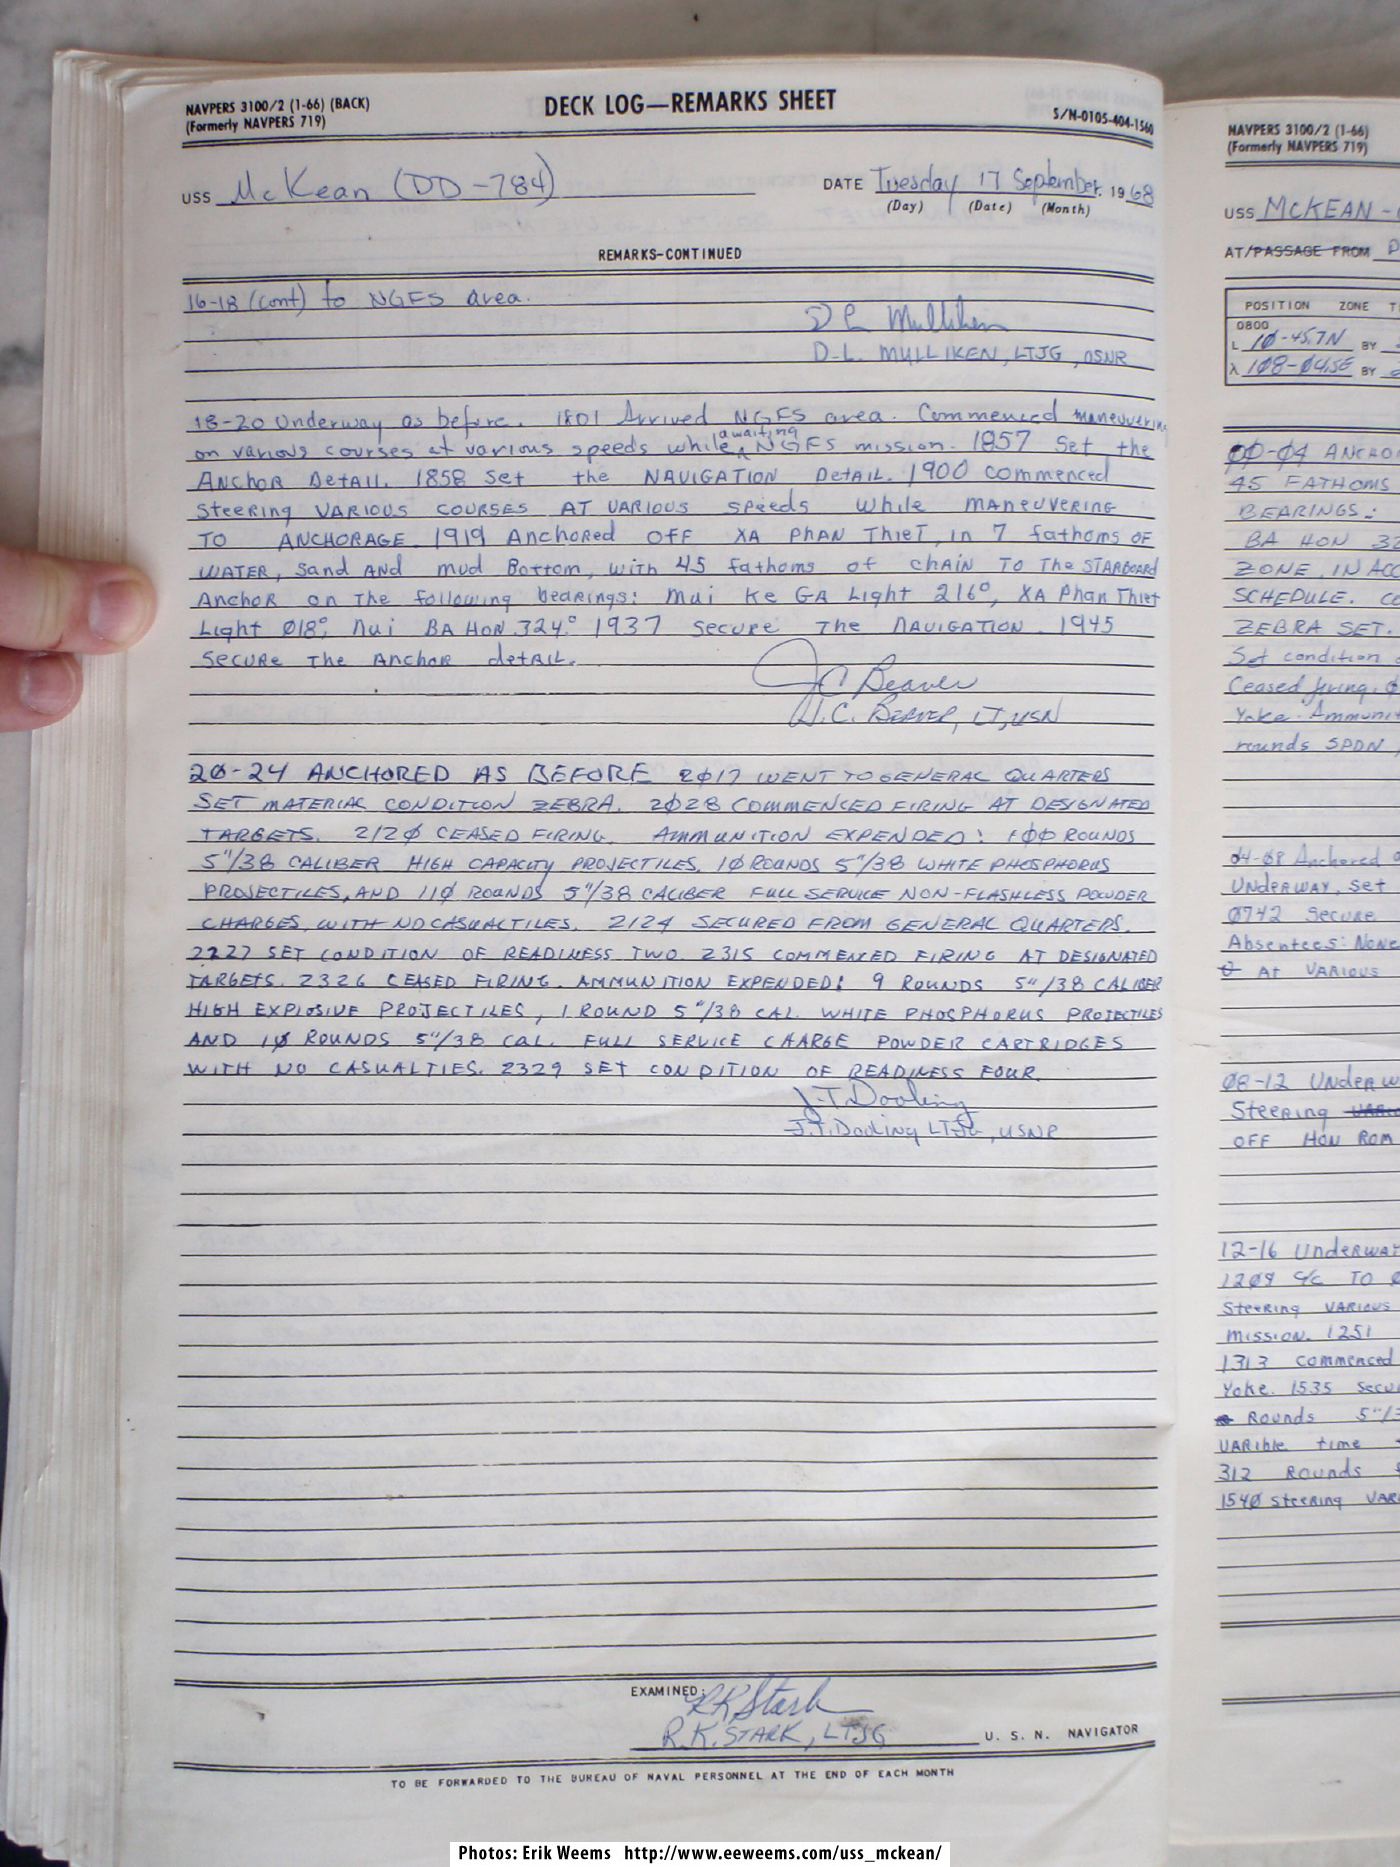 NAVPERS 3100/2 (1-66) (BACK)
(Formerly NAVPERS 719)
DECK LOG—REMARKS SHEET
S/N-0105-404-1560
USS McKean (DD-784)
DATE Tuesday 17 September, 1968
(Day) (Date) (Month)
REMARKS-CONTINUED
16-18 (cont) to NGFS area.
D L Mulliken
D.L. MULLIKEN, LTJG, USNR
18-20 Underway as before. 1801 Arrived NGFS area. Commenced maneuvering
on various courses at various speeds while awaiting NGFS mission. 1857 Set the
Anchor Detail. 1858 Set the NAVIGATION Detail. 1900 commenced
Steering VARIOUS COURSES AT VARIOUS speeds while MANEUVERING
TO ANCHORAGE. 1919 Anchored OFF XA PHAN THIET, in 7 fathoms OF
WATER, sand AND mud Bottom, with 45 fathoms of chain TO The STARBOARD
Anchor on The following bearings: Mui Ke GA Light 216°, XA Phan Thiet
Light Ø18°, Nui BA HON 324.° 1937 secure The NAVIGATION. 1945
Secure The Anchor detail.
J C Beaver
J.C. BEAVER, LT, USN
2Ø-24 ANCHORED AS BEFORE 2Ø17 WENT TO GENERAL QUARTERS
SET MATERIAL CONDITION ZEBRA. 2Ø28 COMMENCED FIRING AT DESIGNATED
TARGETS. 212Ø CEASED FIRING. AMMUNITION EXPENDED: 1ØØ ROUNDS
5"/38 CALIBER HIGH CAPACITY PROJECTILES, 1Ø ROUNDS 5"/38 WHITE PHOSPHORUS
PROJECTILES, AND 11Ø ROUNDS 5"/38 CALIBER FULL SERVICE NON-FLASHLESS POWDER
CHARGES, WITH NO CASUALTILES. 2124 SECURED FROM GENERAL QUARTERS.
2227 SET CONDITION OF READINESS TWO. 2315 COMMENCED FIRING AT DESIGNATED
TARGETS. 2326 CEASED FIRING. AMMUNITION EXPENDED: 9 ROUNDS 5"/38 CALIBER
HIGH EXPLOSIVE PROJECTILES, 1 ROUND 5"/38 CAL. WHITE PHOSPHORUS PROJECTILES
AND 1Ø ROUNDS 5"/38 CAL. FULL SERVICE CHARGE POWDER CARTRIDGES
WITH NO CASUALTIES. 2329 SET CONDITION OF READINESS FOUR.
J.T. Dooling
J.T. Dooling LTJG, USNR
EXAMINED:
RK Stark
R.K. STARK, LTJG U. S. N. NAVIGATOR
TO BE FORWARDED TO THE BUREAU OF NAVAL PERSONNEL AT THE END OF EACH MONTH
NAVPERS 3100/2 (1-66)
(Formerly NAVPERS 719)
USS MCKEAN -
AT/PASSAGE FROM
POSITION ZONE
0800
L 1Ø-45.7N BY
λ 1Ø8-Ø4.5E BY
ØØ-Ø4
45 FATHOMS
BEARINGS:
BA HON 32
ZONE, IN
SCHEDULE.
ZEBRA SET.
Set condition
Ceased firing.
Yoke.
rounds SPDN,
Ø4-Ø8 Anchored
UNDERWAY, set
Ø742 Secure
Absentees: None
AT VARIOUS
Ø8-12
Steering
OFF HON ROM
12-16
12Ø9 C/C TO
Steering VARIOUS
mission. 1251
1313 commenced
Yoke. 1535
Rounds
VARible time
312 Rounds
154Ø Steering
Photos: Erik Weems http://www.eeweems.com/uss_mckean/